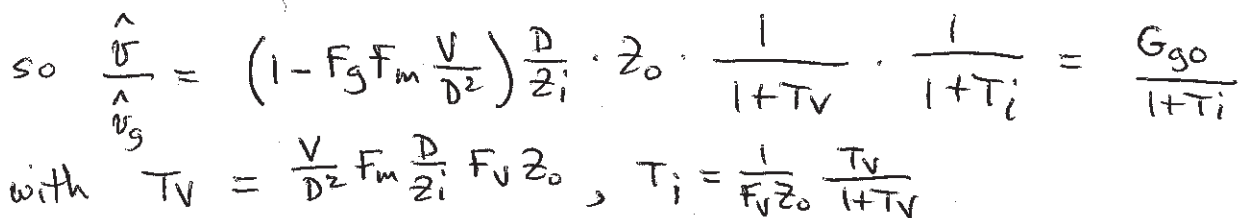 so v̂/v̂_g = (1 - F_g F_m V/D²) D/Z_i · Z_o · 1/(1+T_v) · 1/(1+T_i) = G_go/(1+T_i)
with T_v = V/D² F_m D/Z_i F_v Z_o , T_i = 1/(F_v Z_o) T_v/(1+T_v)